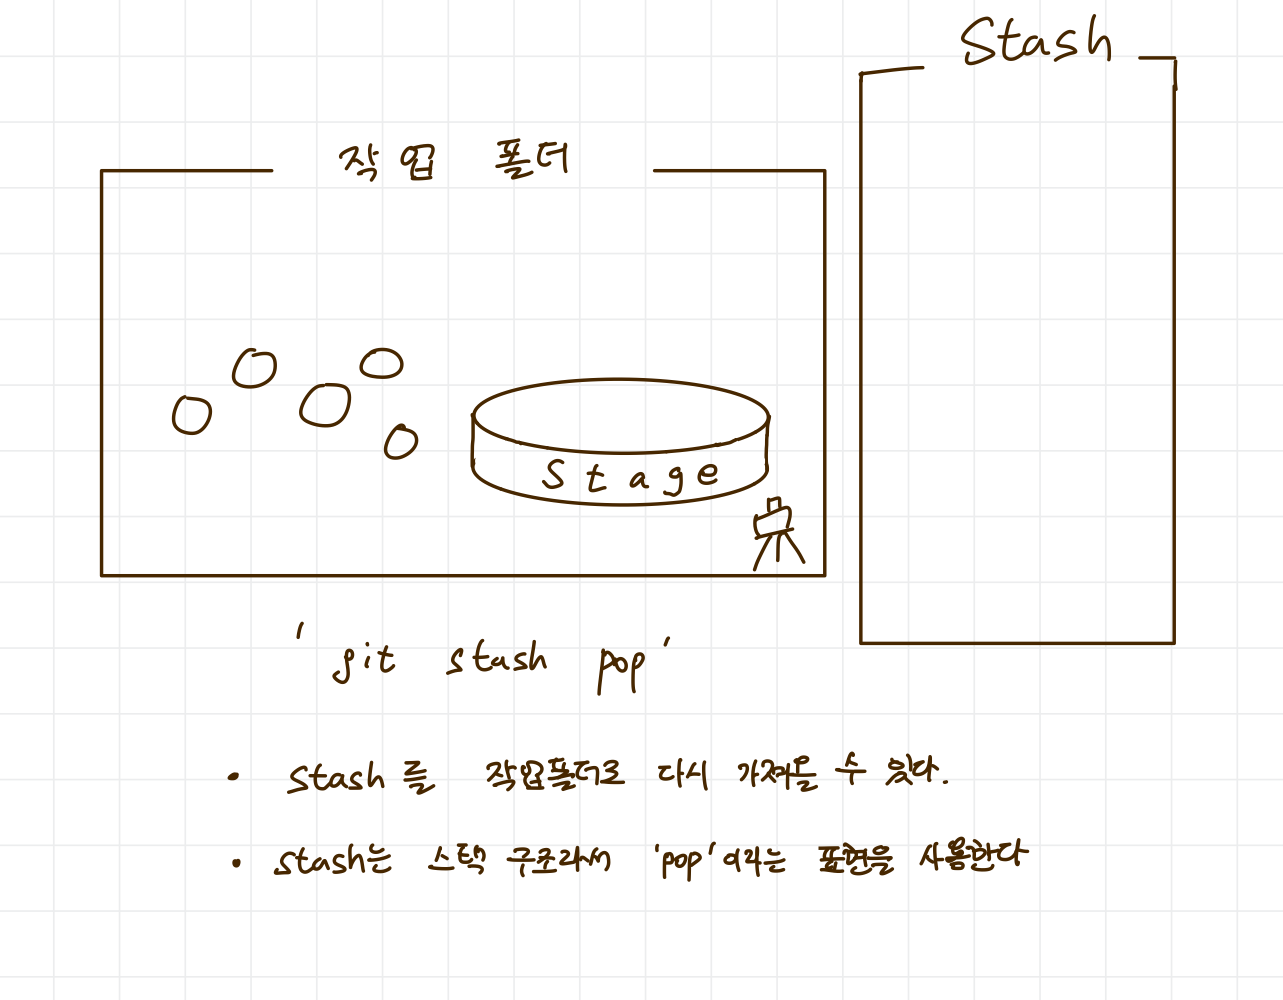 Stash
작업 폴더
Stage
'git stash pop'
• stash를 작업폴더로 다시 가져올 수 있다.
• stash는 스택 구조라서 'pop'이라는 표현을 사용한다